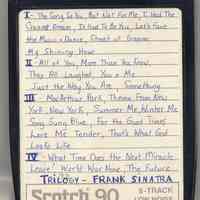 I - The Song Is You, But Not For Me, I Had The
Craziest Dream, It Had To Be You, Let's Face
the Music & Dance, Street of Dreams,
My Shining Hour
II - All of You, More Than You Know,
They All Laughed, You & Me
Just the Way You Are, Something
III - MacArthur Park, Theme From New
York New York, Summer Me Winter Me
Song Sung Blue, For the Good Times
Love Me Tender, That's What God
Looks Like
IV - What Time Does the Next Miracle
Leave? World War None, The Future
TRILOGY - FRANK SINATRA
Scotch 90 8-TRACK
LOW NOISE